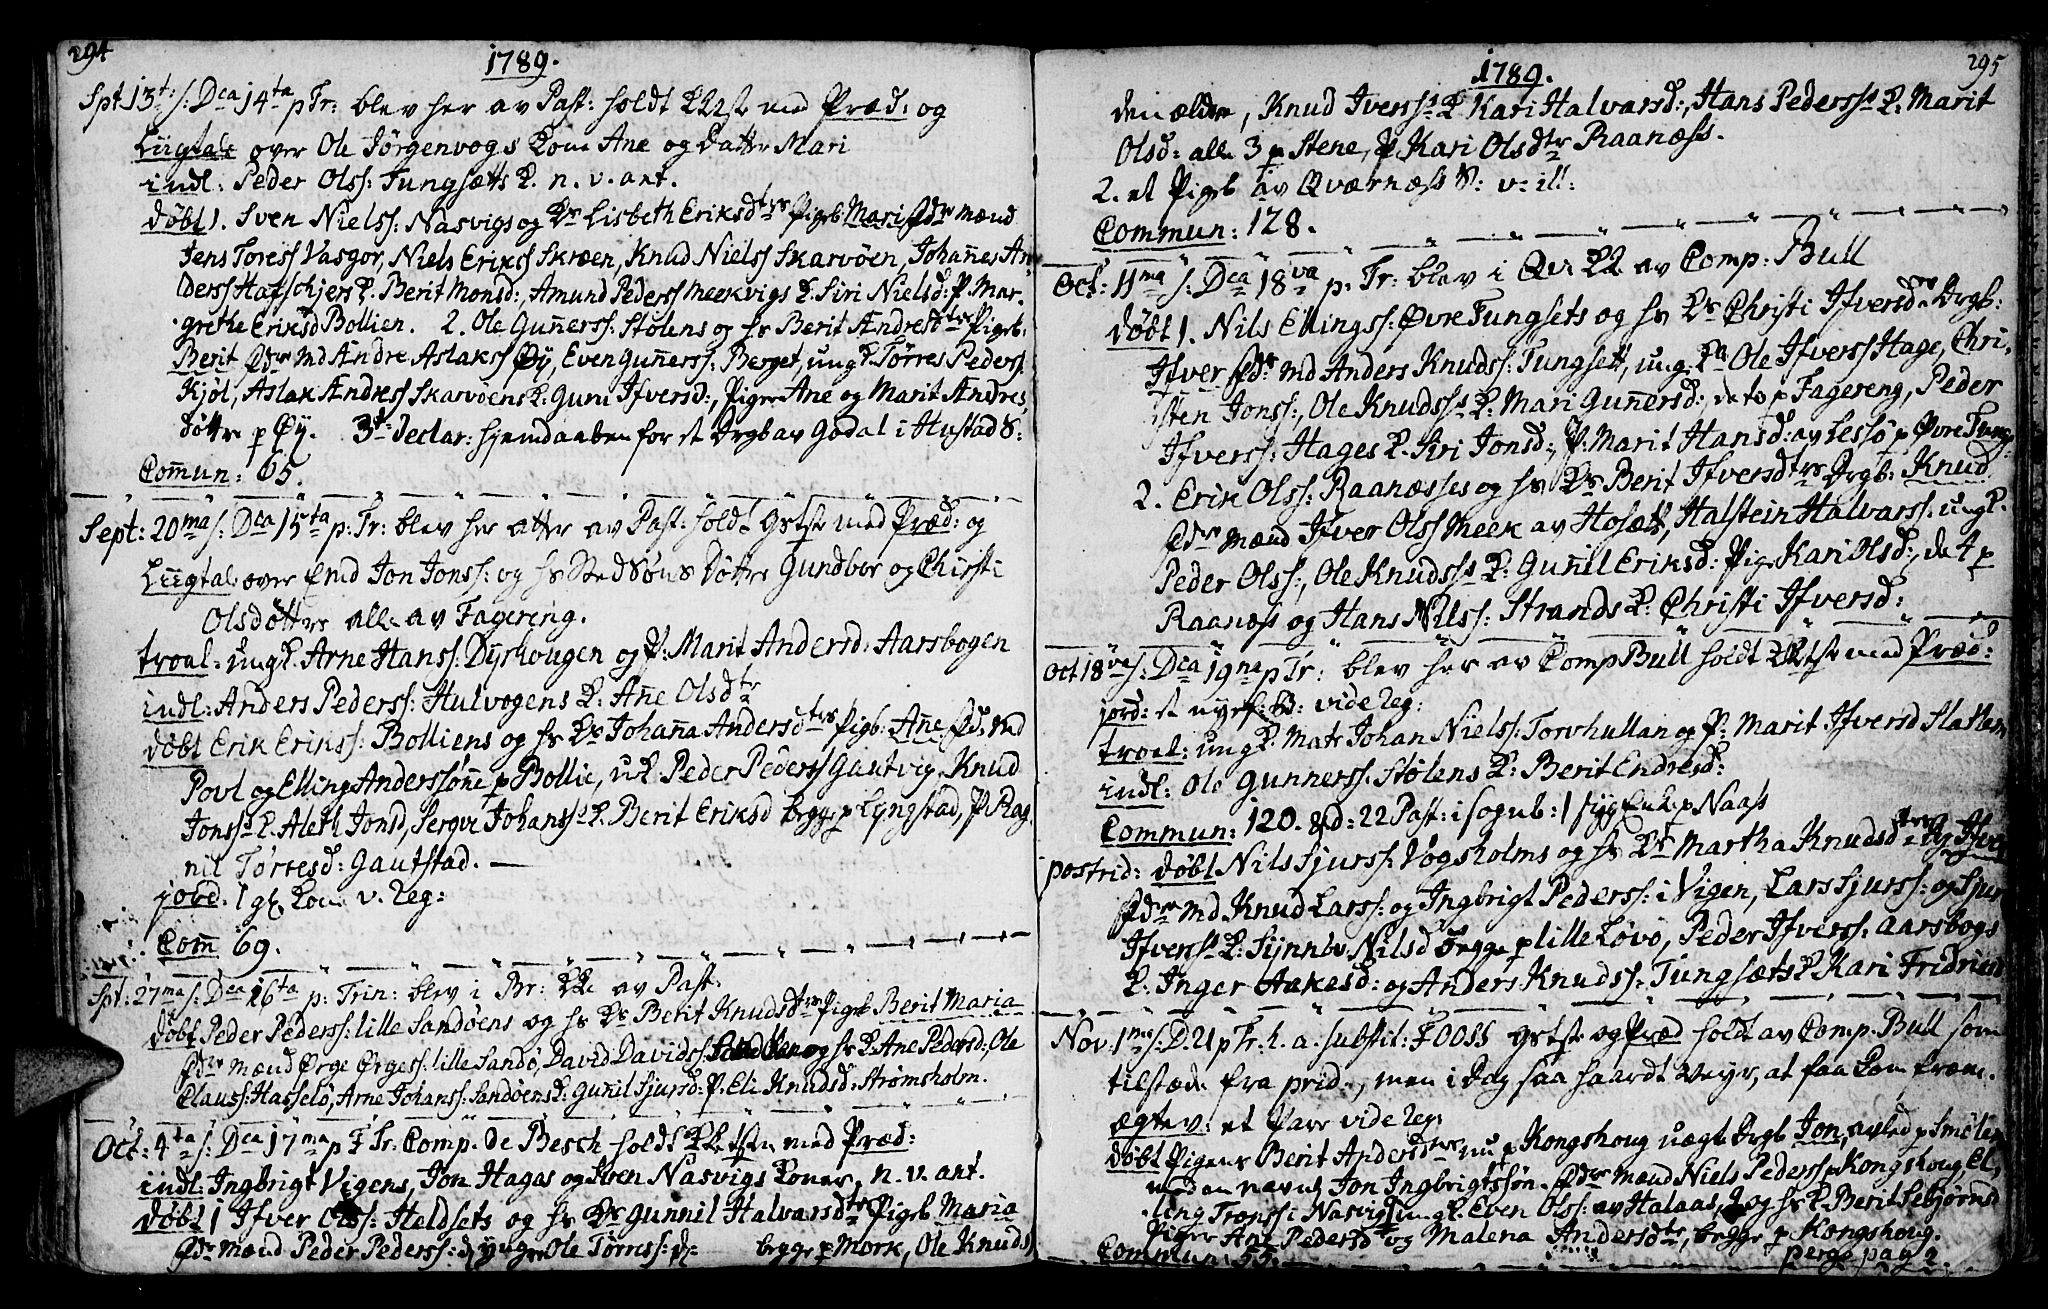 294
1789.
Spt 13t: s: Dca 14ta p Tr: blev her av Past: holdt med Præd: og
Liigtale over Ole Jørgenvogs Kone Ane og Datter Mari
indl: Peder Olss: Tungsætts K. n. v. ant.
døbt 1. Sven Nielss: Nasvigs og Kr Lisbeth Eriksdtrs Pigeb Mari Fdre mænd
Jens Toress Vasgor, Niels Erikss Skreen, Knud Nielss Skarvøen, Johanes An,
derss Hafschjers K. Berit Monsd:, Amund Peders Meekvigs K. Siri Nielsd: P. Mar-
grethe Eriksd Bollien. 2. Ole Gunnerss: Stølens og hs Berit Ændresdtrs Pigeb:
Berit Fdre md Andre Aslakss Øÿ, Even Gunnerss: Berget, ung K. Tørres Peders
Kjøl, Aslak Ændress Skarvøens K: Guni Ifversd:, Piger Ane og Marit Ændres,
døttre p Øÿ. 3de declar: hjemdaaben for et Drgb av Godal i Hustad S:
Comun: 65.
Sept: 20ma s: Dca 15ta p: Tr: blev her atter av Past: holdt gstste med Præd: og
Liigtale over Emd Jon Jonss: og hs Stedsøns døttre Gundbor og Christi
Olsdøttre alle av Fagereng.
trol: ung K. Arne Hanss: Dÿrhougen og P: Marit Andersd: Aarsbogen
indl: Anders Pederss: Hulvogens K: Ane Olsdtr
døbt Erik Erikss: Bolliens og hs Kr Johana Andersdtrs Pigb. Ane Fd: md
Povl og Elling Anderssøne p Bollie, u K. Peder Peders Gautvig, Knud
Jonss K. Aleth Jonsd, Sergve Johanss K. Berit Eriksd begge p Lyngstad, P. Rag,
nil Tørresd: Gautstad.
jord. 1 gl Kone v. Reg:
Com 69.
Spt: 27ma s: Dca 16ta p: Trin: blev i Br: av Past:
døbt Peder Pederss: lille Sandøens og hs Kr Berit Knudsdtrs Pigeb Berit Maria
Fdre mænd Ørge Ørgess: lille Sandø, David Davidss: og hs K. Ane Pedersd: Ole
Clauss: Hasselø, Arne Johanss: Sandøens K. Gunil Sjursd: P. Eli Knudsd: Strømsholm.
Oct: 4ta s: Dca 17ma p Tr: Comp: de Besch holdt med Præd:
indl: Ingbrigt Vigens, Jon Hagas og Sven Nasvigs Koner, n. v. ant.
døbt 1 Ifver Olss: Heldsets og hs Kr Gunnil Halvarsdtrs Pigeb Maria
Fdre mænd Peder Pederss: d yngre Ole Tørress: d: begge p Mork, Ole Knuds
295
1789.
den ældre, Knud Iverss K. Kari Halvarsd:, Hans Pederss K. Marit
Olsd: alle 3 p Stene, P Kari Olsdtr Raanæss.
2. et Pigeb av Qværnæss S: v: ill:
Commun: 128.
Oct: 11ma s: Dca 18va p: Tr: blev i Qv av Comp: Bull
døbt 1. Nils Ellingss: Øvre Tungsets og hs Kr Christi Ifversdtrs Drgb:
Ifver Fdre md Anders Knudss: Tungsett, ung Kn Ole Ifverss Hage, Chri,
sten Jonss:, Ole Knudss K: Mari Gunersd: de to p Fagereng, Peder
Ifverss: Hages K. Kri Jonsd:, P. Marit Hansd: av Lessø p Øvre Tung
2. Erik Olss: Raanæsses og hs Kr Berit Ifversdtrs Drgb: Knud
Fdre mænd Ifver Olss Meek av Hosætt, Halstein Halvarss: ung K.
Peder Olss:, Ole Knudss K: Gunil Eriksd: Pige Kari Olsd:, de 4 p
Raanæss og Hans Nilss: Strands K: Christi Ifversd:
Oct 18va s: Dca 19na p Tr: blev her av Comp Bull holdt med Præd:
jord: et nyef: B: vide Reg:
trol: ung K. Matr Johan Nielss: Torvhullan og P: Marit Ifversd Slatlem
indl: Ole Gunnerss: Stølens K: Berit Endresd:
Commun: 120. & d: 22 Past: i Sognb: 1 syg Enk: p Naass
postrid: døbt Nils Sjurss: Vogsholms og hs Kr Martha Knudsdtrs Ifver
Fdre md Knud Larss: og Ingbrigt Pederss: i Vigen, Lars Sjurss: og Sjur
Ifverss K: Synnøv Nilsd begge p lille Løvø, Peder Ifverss: Aarsbogs
K. Inger Aakesd: og Anders Knudss: Tungsæts K Kari Fridrics
Nov. 1ma s: D. 21 p Tr: h. a. substit: FOOSS gstste og Præd holdt av Comp. Bull som
tilstæde fra prid:, men i Dag saa haardt Veÿr, at faa kom frem.
ægtev: et Parr vide Reg:
døbt Pigens Berit Andersdtrs nu p Kongshoug uægte Drgb Jon, avled p Smølen
med en navnl Jon Ingbrigtssøn. Fdre mænd Niels Pederss p Kongshoug El,
ling Tronss i Nasvig ung K. Even Olss: av Halaas, og hs K. Berit Sebjørnsd
Piger Ane Pedersd og Malena Andersdtr, begge p Kongshoug.
Commun: 55.
perge pag 2.